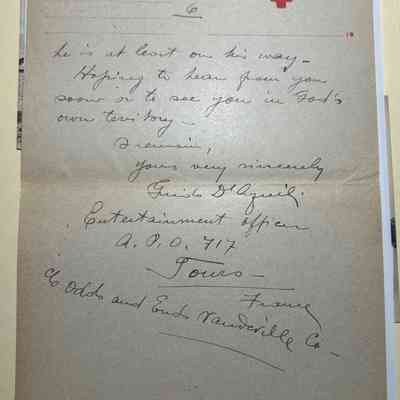 6
19
he is at least on his way –
Hoping to hear from you
soon or to see you in God's
own territory –
I remain,
yours very sincerely
Guido D'Aquili
Entertainment officer
A. P. O. 717
Tours –
France
c/o Odds and Ends Vaudeville Co –